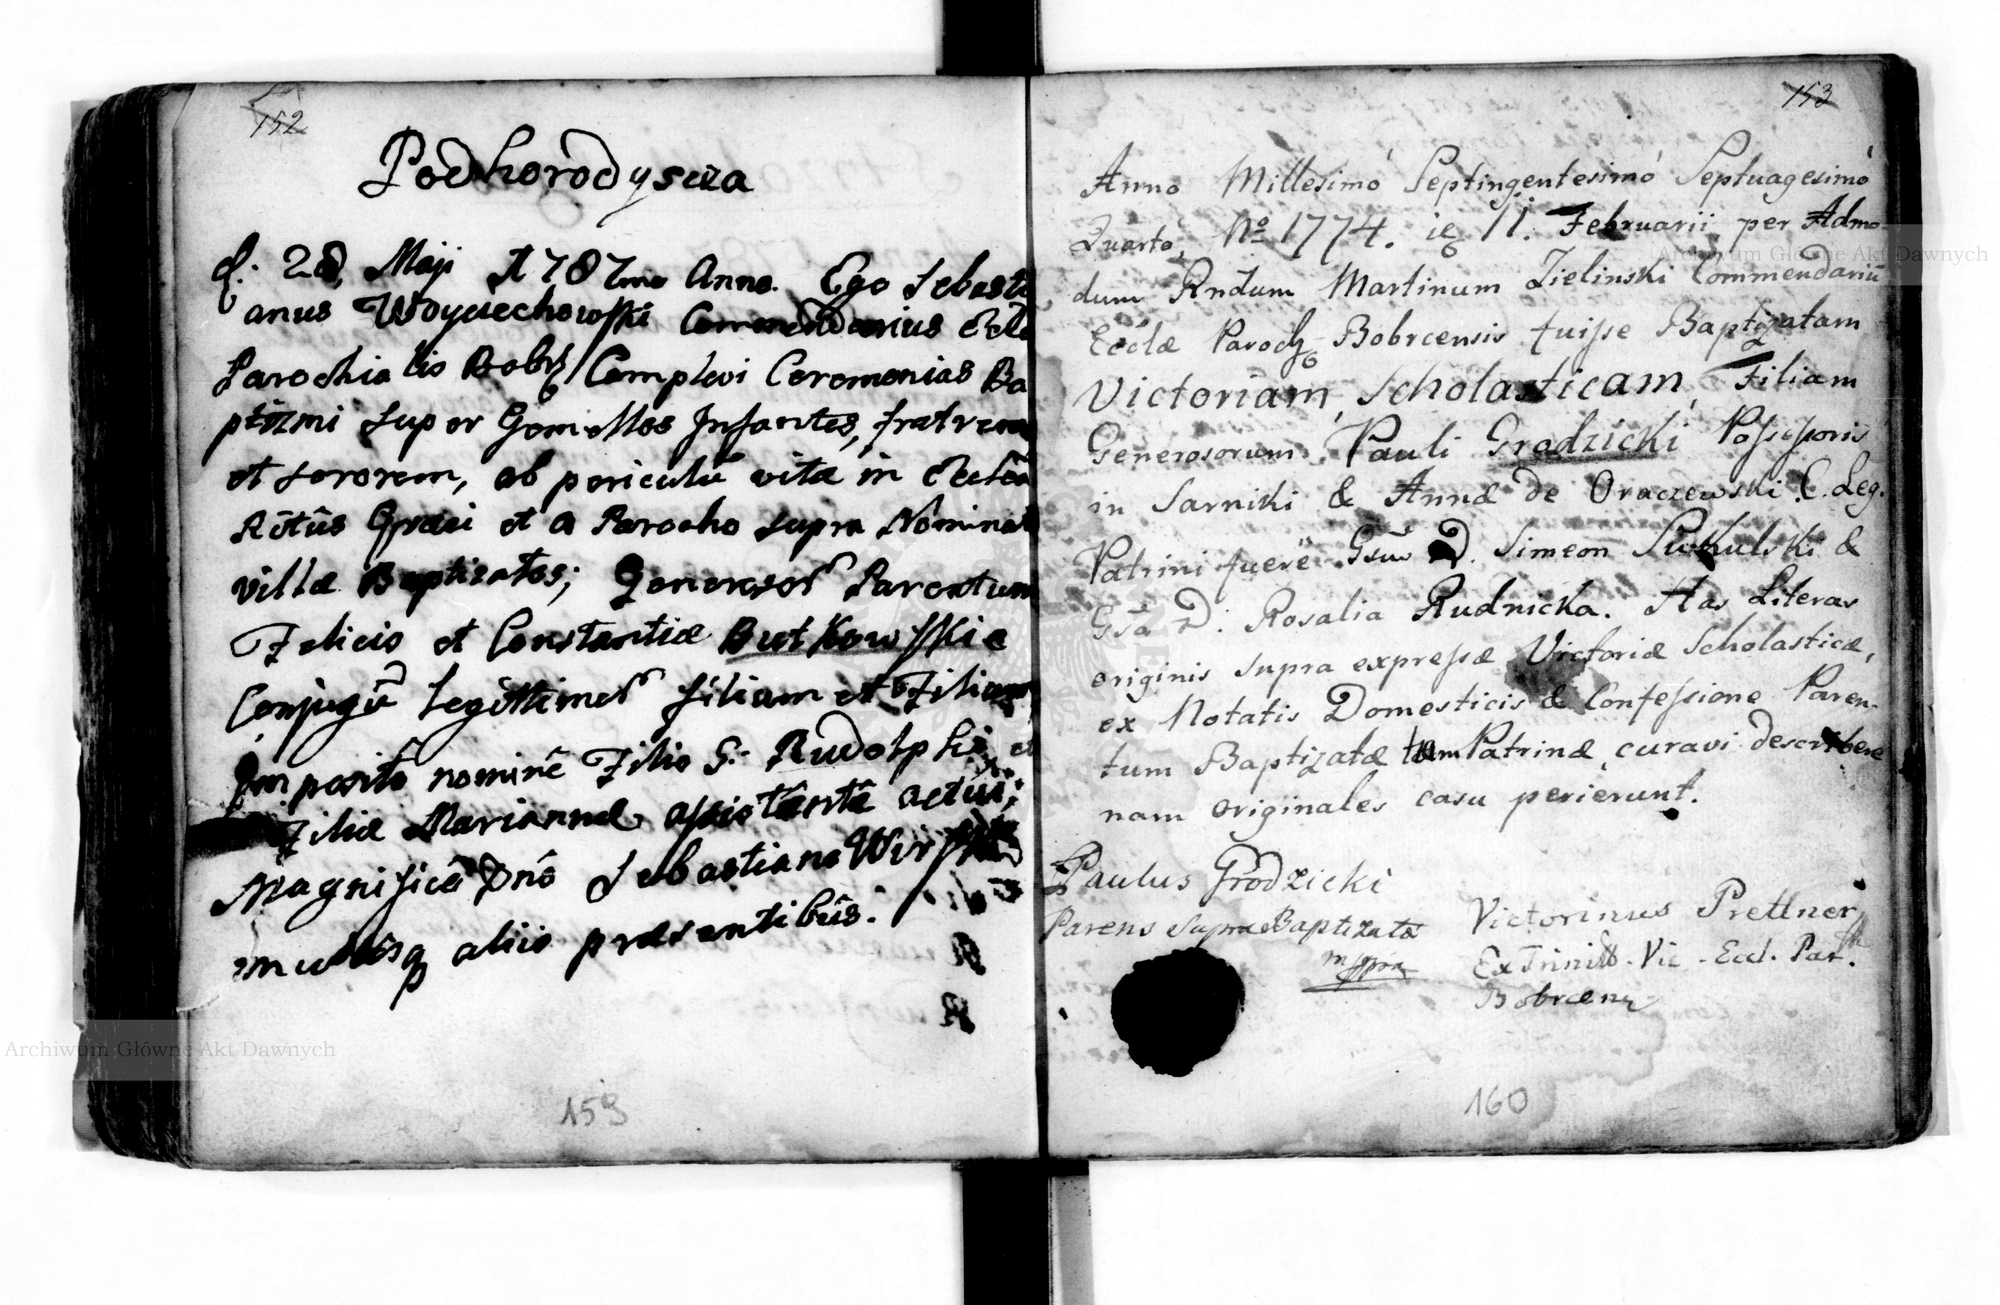 152
Podhorodyscza
d. 28 Maji 1787mo Anno. Ego Sebasti
anus Woyciechowski Commendarius Eccle
Parochialis Bobr Complevi Ceremonias Ba
ptizmi super Gemellos Infantes, fratrem
et sororem, ob periculū vitæ in Ecclia
Ritûs Græci et a Parocho supra Nominat
villæ Baptisatos; Generosor Parentum
Felicis et Constantiæ Butkowskie
Conjugū Legittimor filiam et Filium
Impositô nominê Filio S: Rudolphi, et
Filiæ Mariannæ assistêntê actui;
Magnificô Dnô Sebastiano
multisq aliis præsentibûs.
159
153
Anno Millesimô Septingentesimô Septuagesimô
Quartô, No 1774. 11. Februarii per Admo-
dum Rndum Martinum Zielinski Commendariū
Ecclæ Paroch Bobrcensis fuisse Baptizatam
Victoriam, Scholasticam, Filiam
Generosorum Pauli Grodzicki Possessoris
in Sarniki & Annæ de Oraczewski C. Leg.
Patrini fuere D. Simeon &
Gsa D. Rosalia Rudnicka. Has Literas
originis supra expressæ Victoriæ Scholasticæ,
ex Notatis Domesticis & Confessione Paren-
tum Baptizatæ tam Patrinæ curavi describere
nam originales casu perierunt.
Paulus Grodzicki
Parens supra Baptizata
mppria
Victorinus Prettner
Ex Trinitt. Vic. Eccl. Par.
Bobrcens
160
Archiwum Główne Akt Dawnych
Archiwum Główne Akt Dawnych